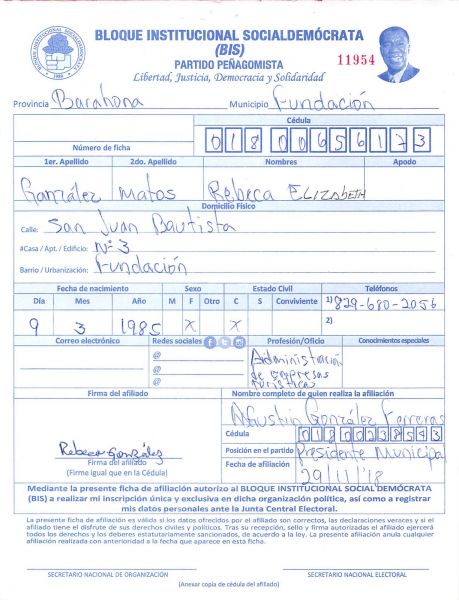 BLOQUE INSTITUCIONAL SOCIALDEMÓCRATA
(BIS)
PARTIDO PEÑAGOMISTA
Libertad, Justicia, Democracia y Solidaridad
11954
Provincia Barahona Municipio Fundación
Cédula
Número de ficha 01800656173
1er. Apellido 2do. Apellido Nombres Apodo
González Matos Rebeca ELIZABETH
Domicilio Físico
Calle: San Juan Bautista
#Casa / Apt. / Edificio: Nº 3
Barrio / Urbanización: Fundación
Fecha de nacimiento Sexo Estado Civil Teléfonos
Día Mes Año M F Otro C S Conviviente 1) 829-680-2056
9 3 1985 X X 2)
Correo electrónico Redes sociales Profesión/Oficio Conocimientos especiales
@ Administración
@ de empresas
@ turísticas
Firma del afiliado Nombre completo de quien realiza la afiliación
Agustín González Ferreras
Cédula 01800238543
Rebeca González Posición en el partido Presidente Municipal
Firma del afiliado Fecha de afiliación
(Firme igual que en la Cédula) 29/11/'18
Mediante la presente ficha de afiliación autorizo al BLOQUE INSTITUCIONAL SOCIALDEMÓCRATA
(BIS) a realizar mi inscripción única y exclusiva en dicha organización política, así como a registrar
mis datos personales ante la Junta Central Electoral.
La presente ficha de afiliación es válida si los datos ofrecidos por el afiliado son correctos, las declaraciones veraces y si el
afiliado tiene el disfrute de sus derechos civiles y políticos. Tras su recepción, sello y firma autorizadas el afiliado ejercerá
todos los derechos y los deberes estatutariamente sancionados, de acuerdo a la ley. La presente afiliación anula cualquier
afiliación realizada con anterioridad a la fecha que aparece en esta ficha.
SECRETARIO NACIONAL DE ORGANIZACIÓN SECRETARIO NACIONAL ELECTORAL
(Anexar copia de cédula del afiliado)